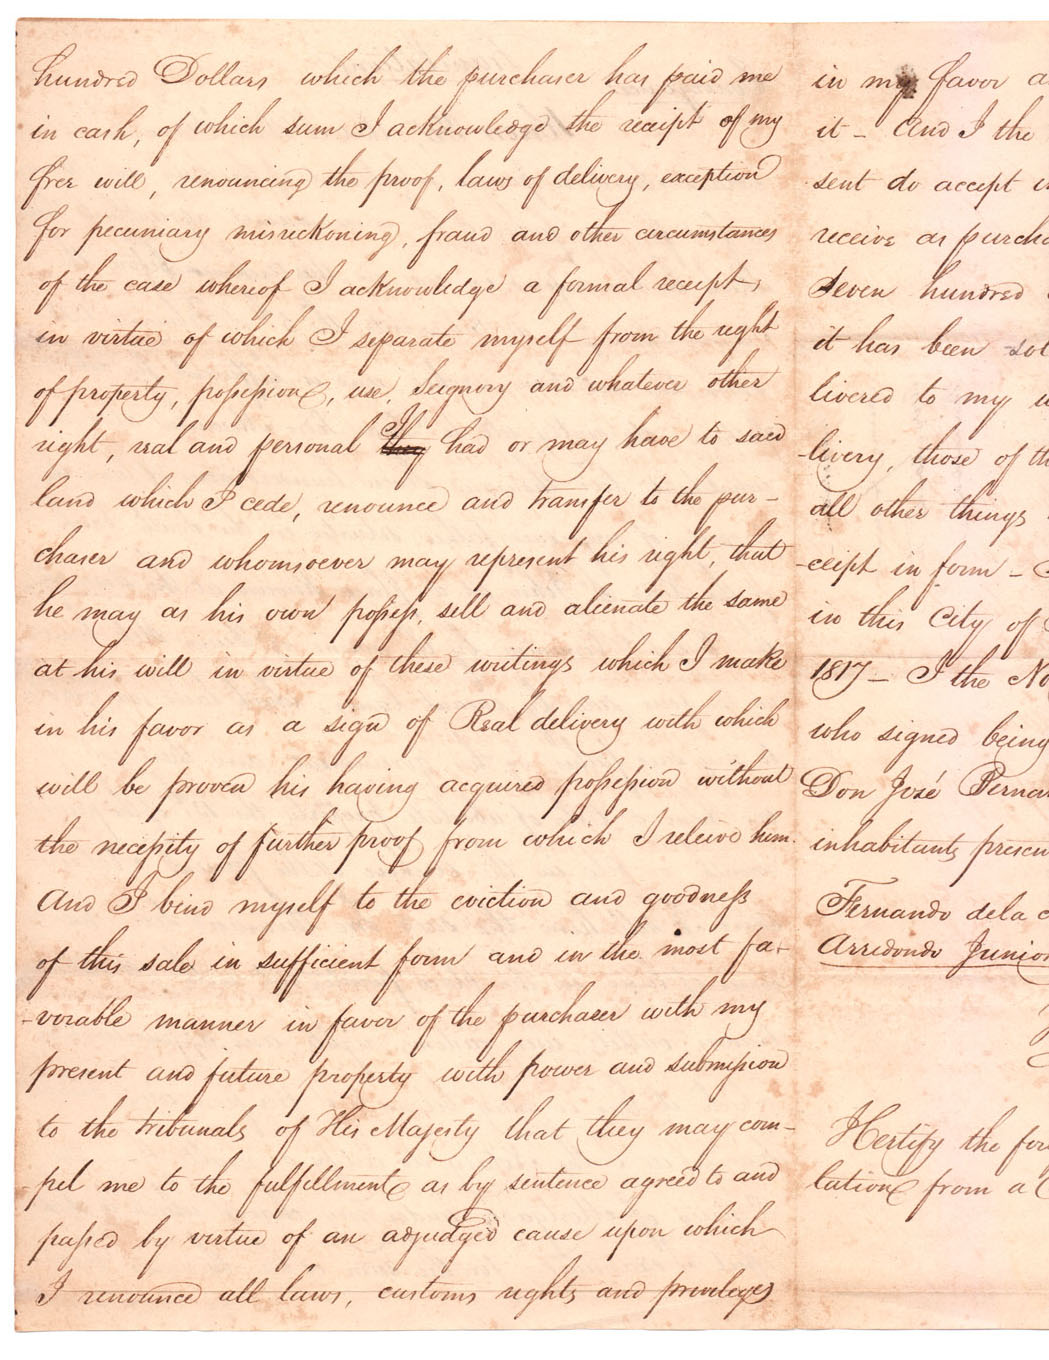 hundred Dollars which the purchaser has paid me
in cash, of which sum I acknowledge the receipt of my
free will, renouncing the proof, laws of delivery, exception
for pecuniary misreckoning, fraud and other circumstances
of the case whereof I acknowledge a formal receipt,
in virtue of which I separate myself from the right
of property, possession, use, Seignory and whatever other
right, real and personal I had or may have to said
land which I cede, renounce and transfer to the pur-
chaser and whomsoever may represent his right, that
he may as his own possess, sell and alienate the same
at his will in virtue of these writings which I make
in his favor as a sign of Real delivery with which
will be proven his having acquired possession without
the necessity of further proof from which I releive him.
And I bind myself to the eviction and goodness
of this sale in sufficient form and in the most fa-
-vorable manner in favor of the purchaser with my
present and future property with power and submission
to the tribunals of His Majesty that they may com-
-pel me to the fulfillment as by sentence agreed to and
passed by virtue of an adjudged cause upon which
I renounce all laws, customs rights and privileges
in my favor a
it - And I the
sent do accept
receive as purcha
Seven hundred
it has been sol
livered to my
-livery, those of th
all other things
-ceipt in form -
in this City of
1817 - I the No
who signed being
Don José Fernan
inhabitants presen
Fernando de la
Arredondo Junior
I Certify the for
lation from a